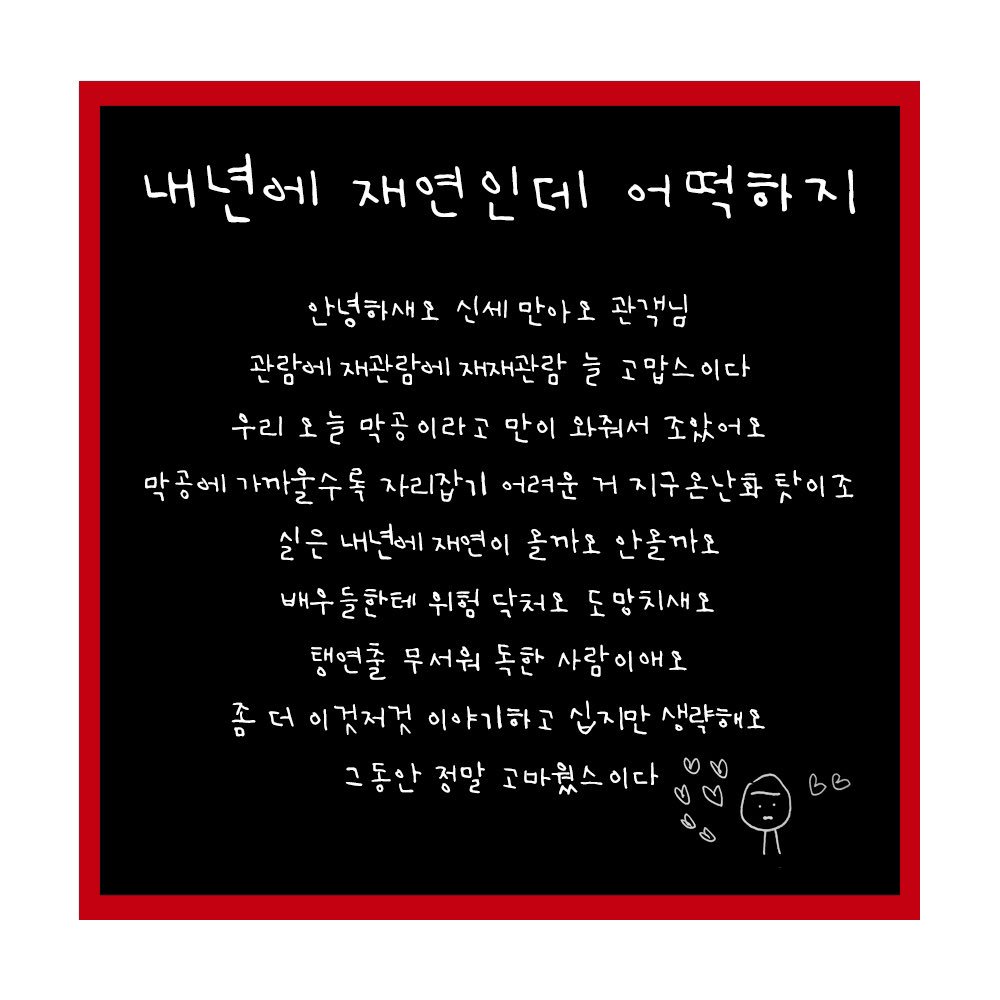 내년에 재연인데 어떡하지
안녕하새오 신세 만아오 관객님
관람에 재관람에 재재관람 늘 고맙스이다
우리 오늘 막공이라고 만이 와줘서 조았어오
막공에 가까울수록 자리잡기 어려운 거 지구온난화 탓이조
실은 내년에 재연이 올까오 안올까오
배우들한테 위험 닥처오 도망치새오
탱연출 무서워 독한 사람이애오
좀 더 이것저것 이야기하고 십지만 생략해오
그동안 정말 고마웠스이다
BB